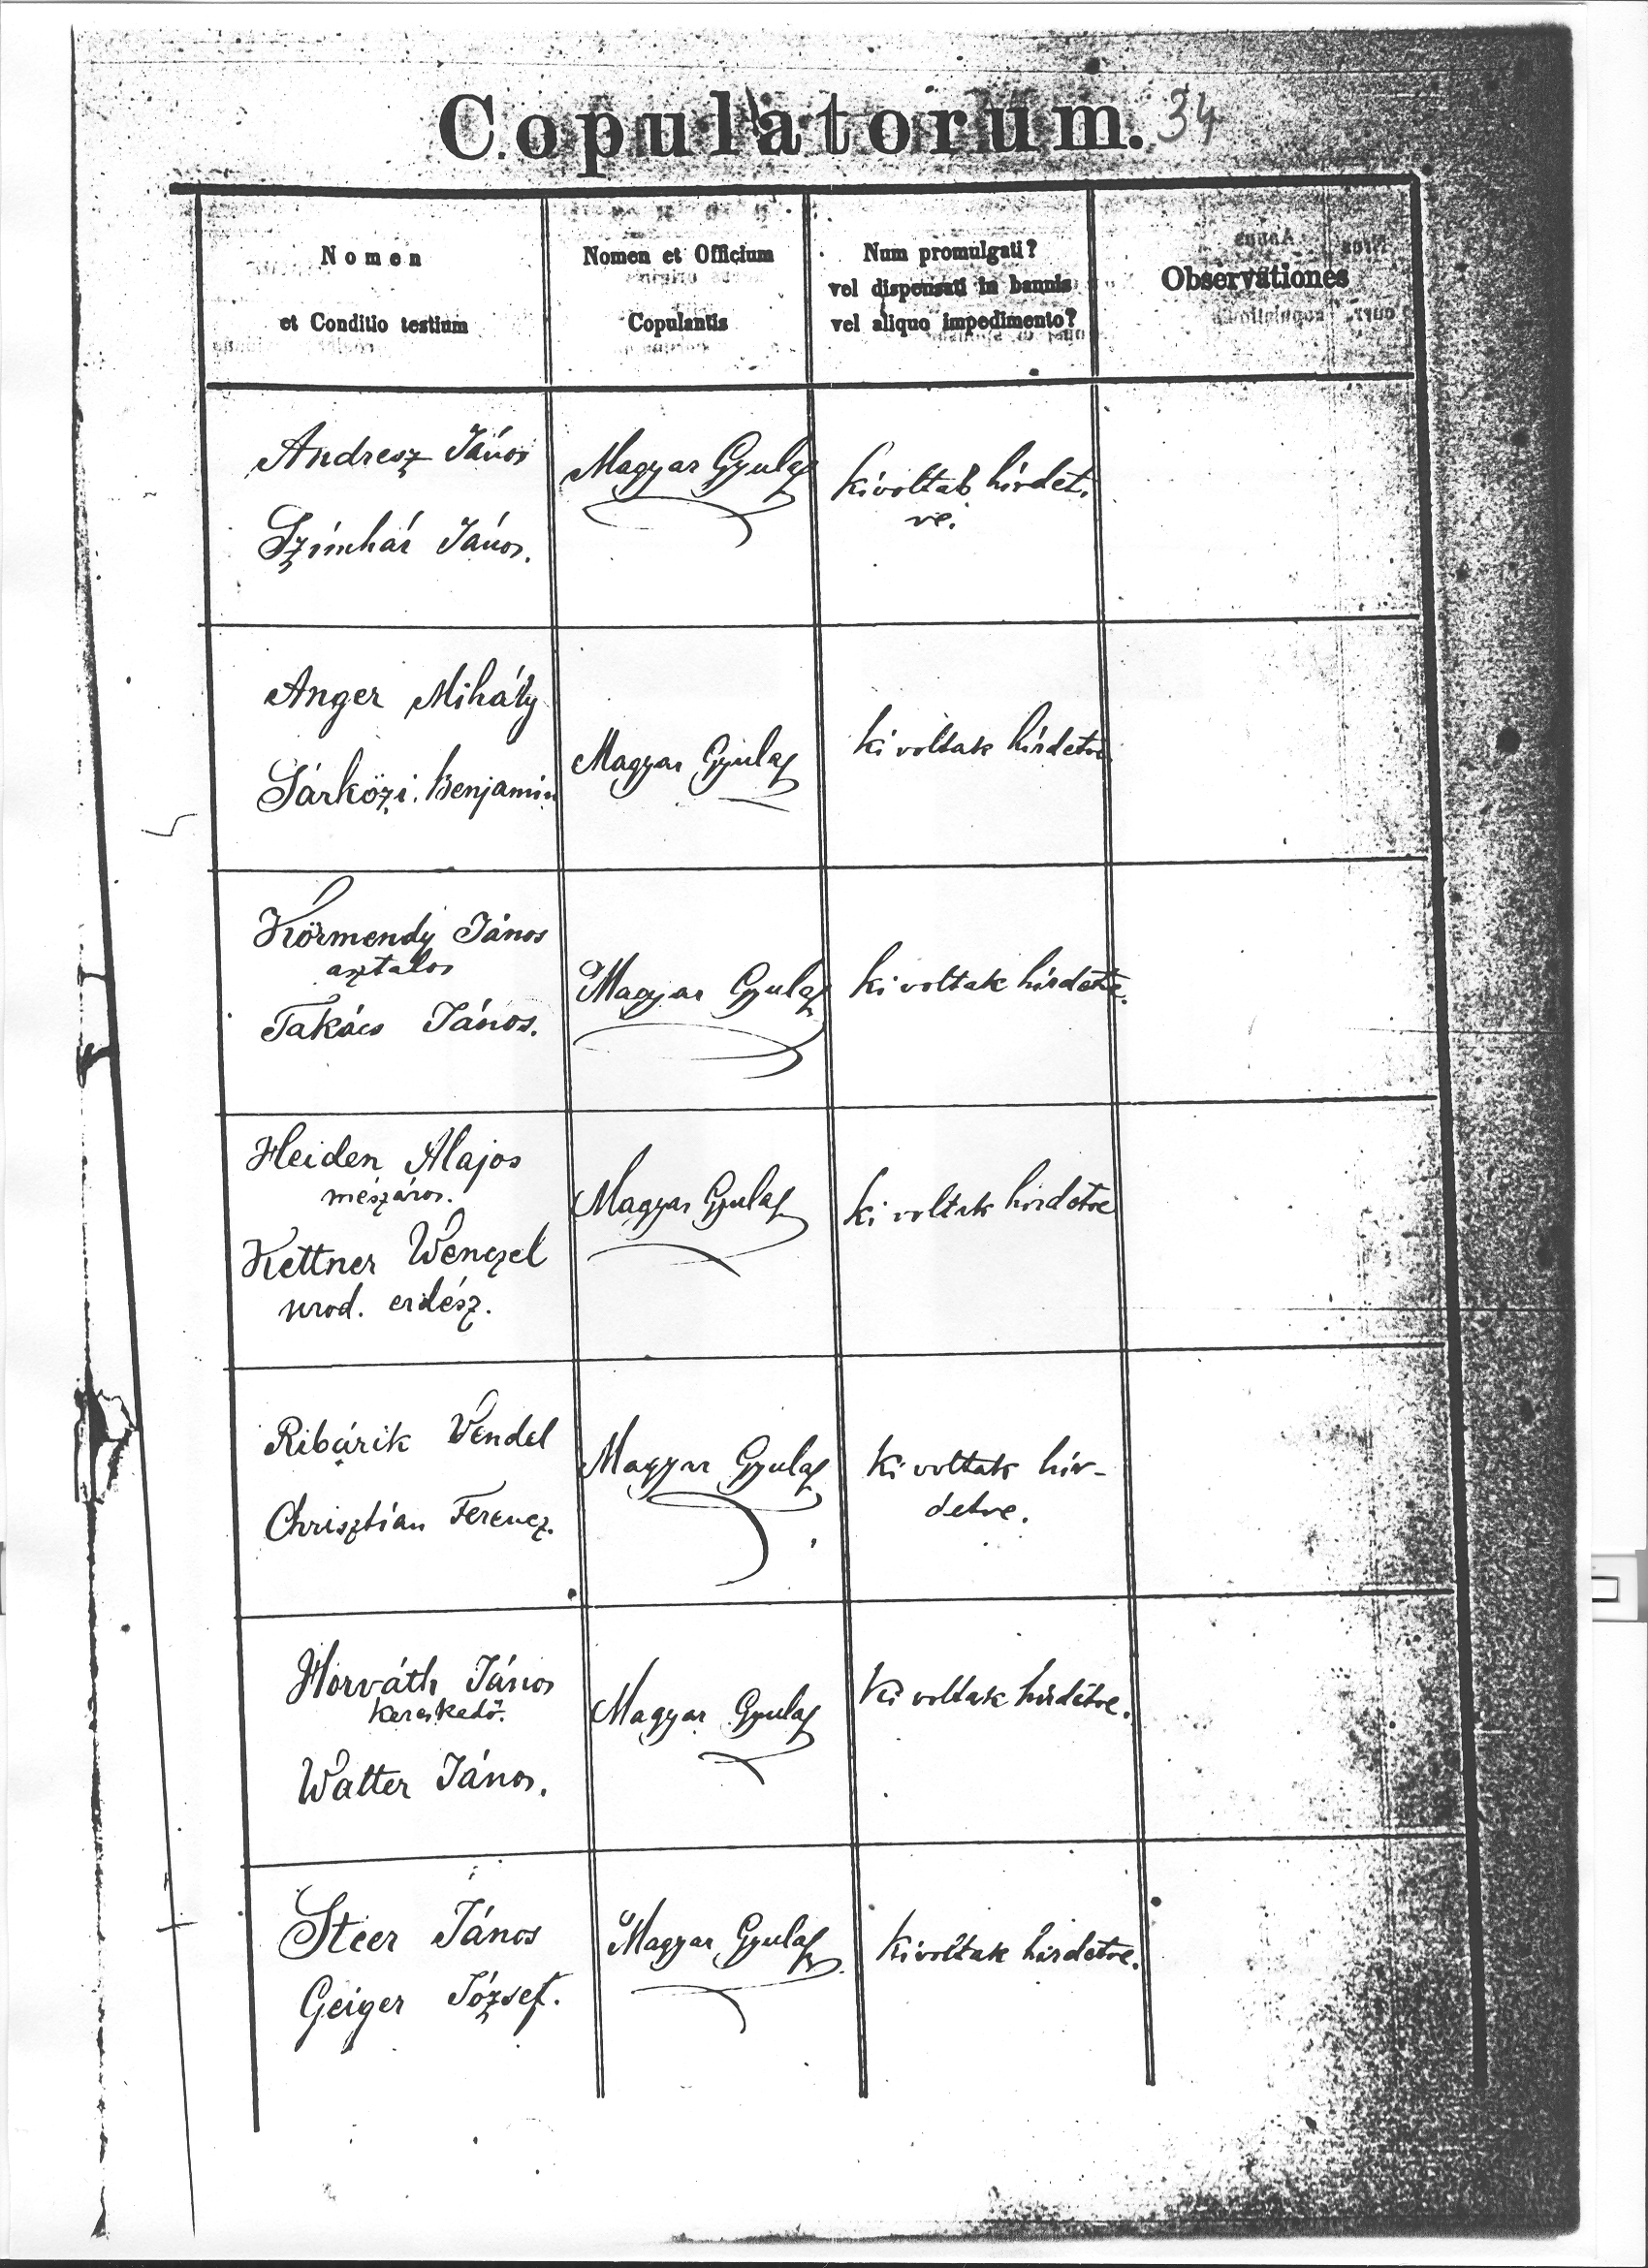 Copulatorum. 34
Nomen
et Conditio testium
Nomen et Officium
Copulantis
Num promulgati?
vel dispensati in bannis
vel aliquo impedimento?
Observationes
Andresz János
Szímhár János.
Magyar Gyula
kivoltak hirdet.
ve.
Anger Mihály
Sárközi Benjamin
Magyar Gyula
ki voltak hirdetve
Körmendy János
asztalos
Takács János.
Magyar Gyula
ki voltak hirdetve.
Heiden Alajos
mészáros.
Kettner Wenczel
urod. erdész.
Magyar Gyula
ki voltak hirdetve
Ribárik Vendel
Chrisztián Ferencz.
Magyar Gyula
ki voltak hir-
detve.
Horváth János
kereskedő.
Walter János.
Magyar Gyula
ki voltak hirdetve.
Steer János
Geiger József.
Magyar Gyula
kivoltak hirdetve.